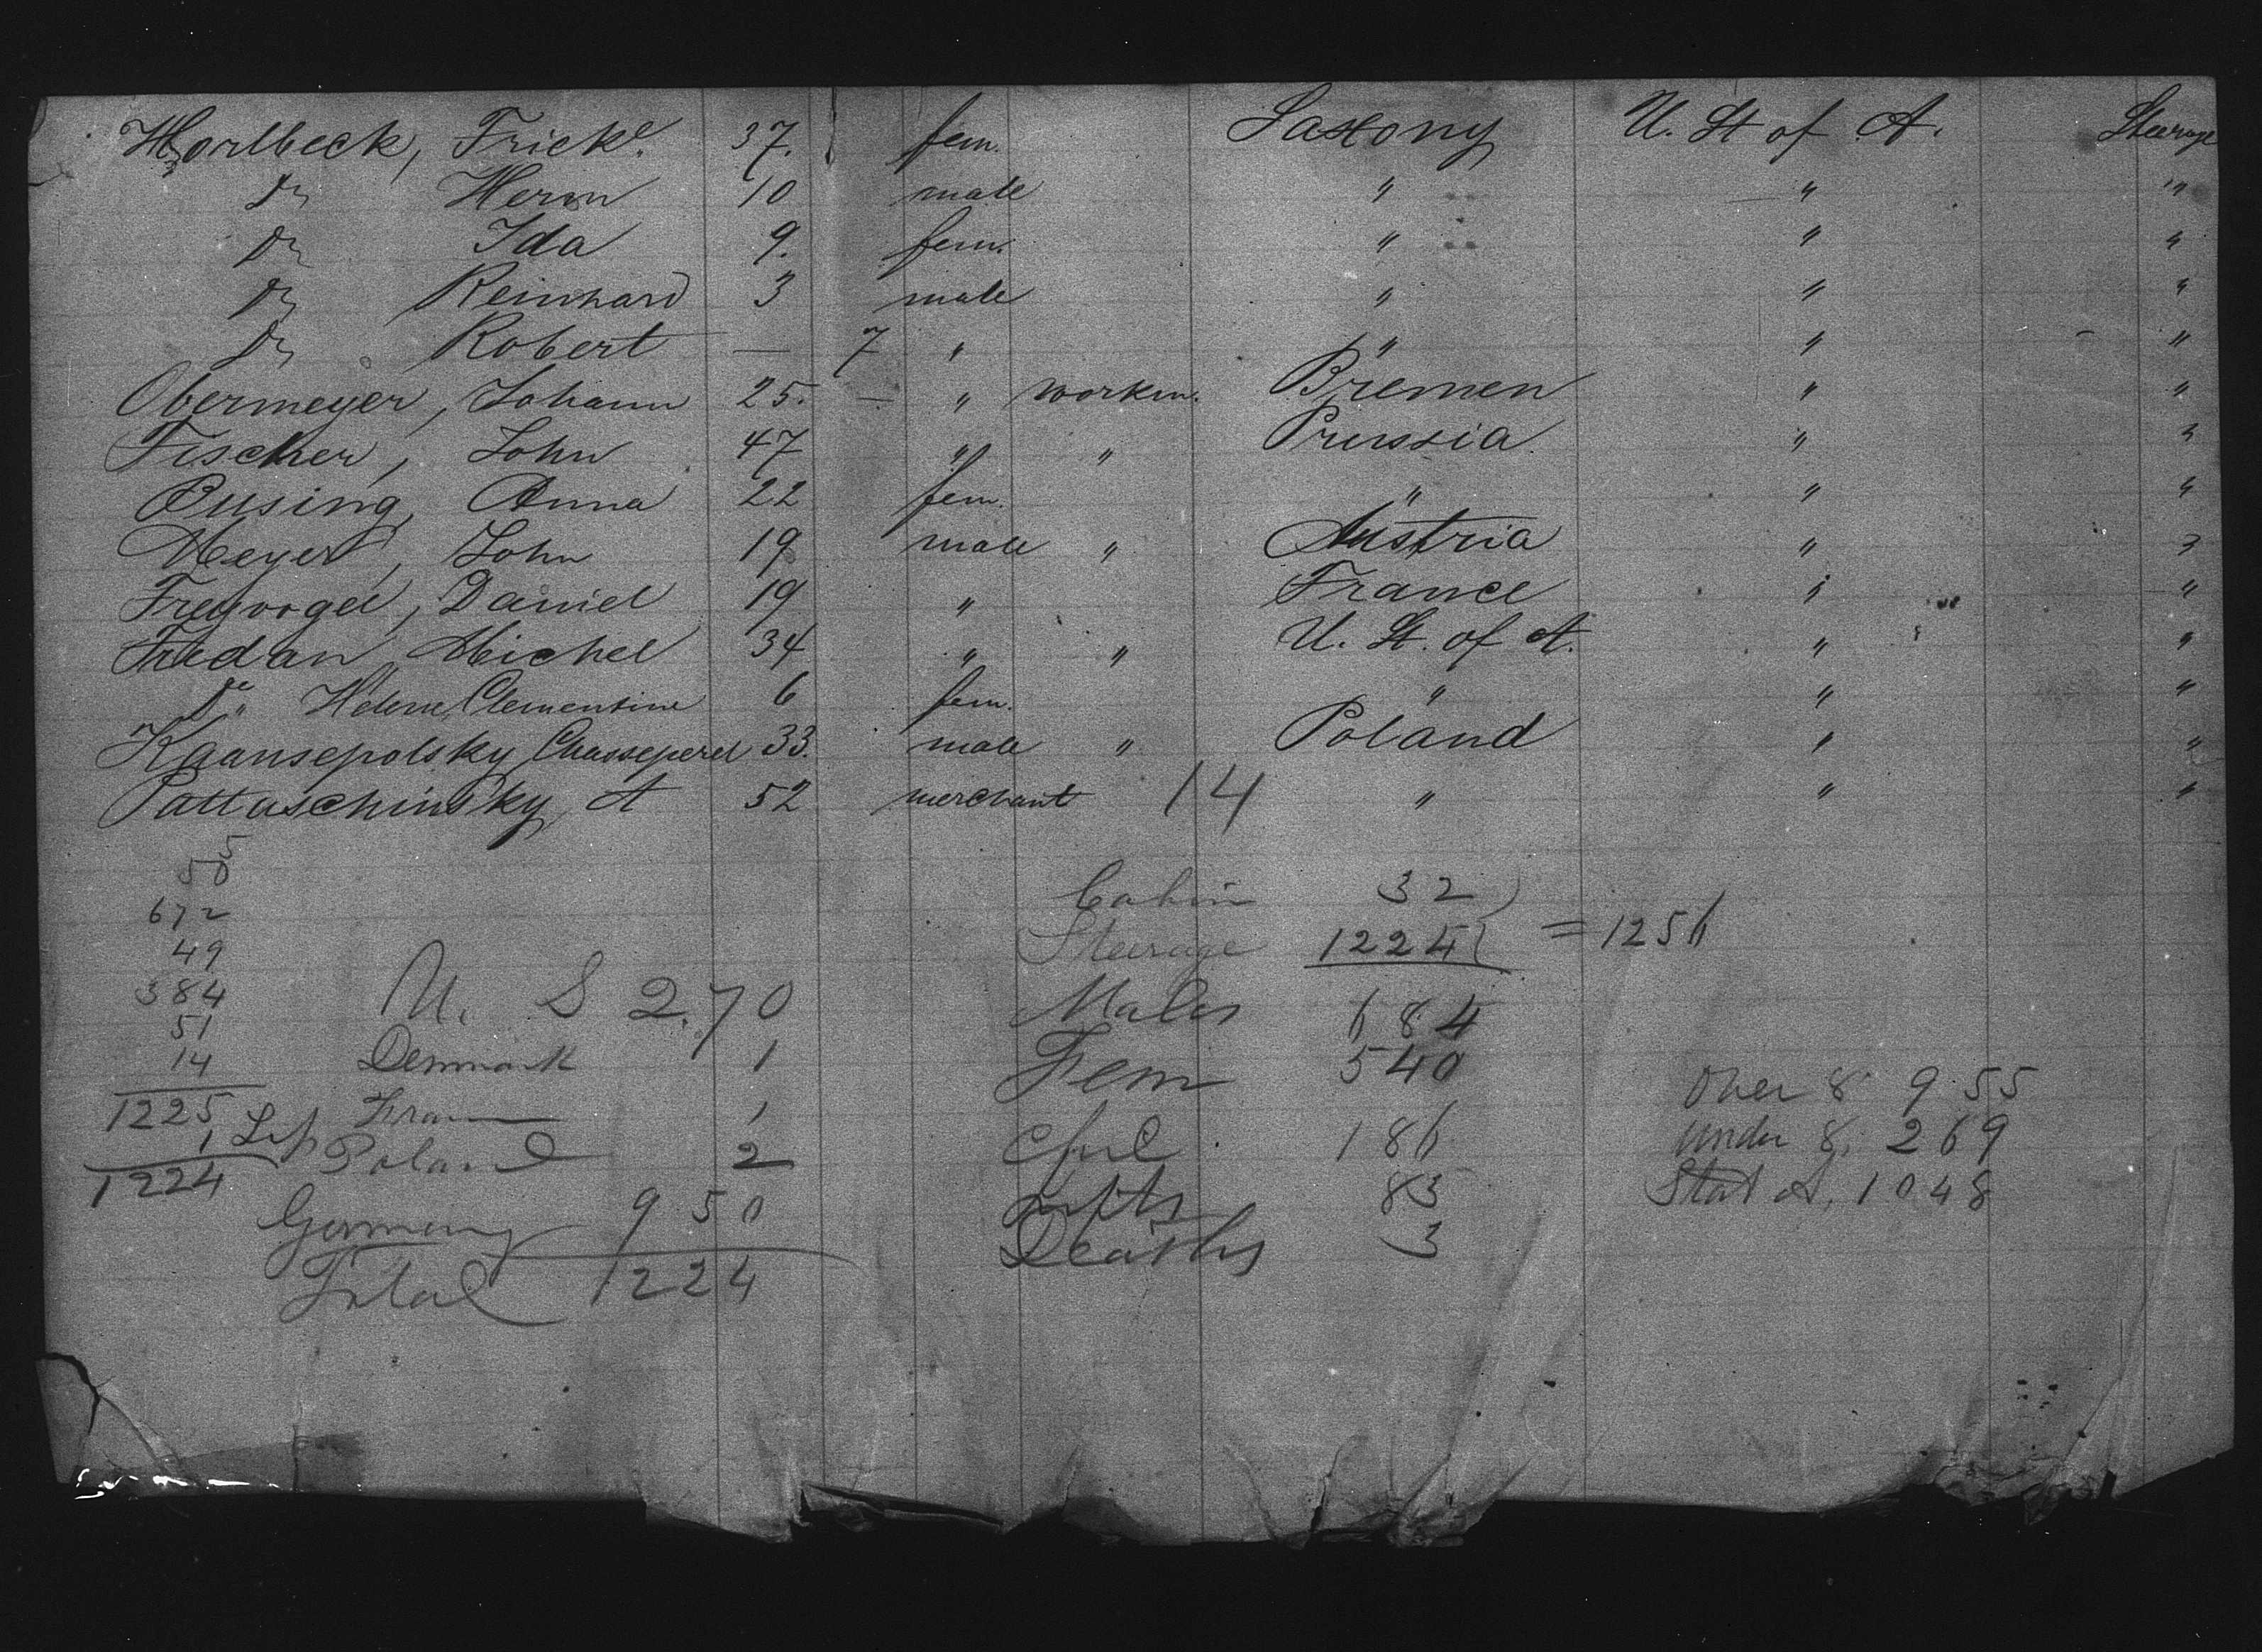 Horlbeck, Fricke. 37. fem. Saxony U. St of A. Steerage
do Herm 10 male " " "
do Ida 9. fem. " " "
do Reinhard 3 male " " "
do Robert — 7 " " " "
Obermeyer, Johann 25. — " workm. Bremen " "
Fischer, John 47 " " Prussia " "
Busing, Anna 22 fem. " " "
Meyer, John 19 male " Austria " "
Freyvogel, Daniel 19 " France " "
Fredan Michel 34 " " U. St. of A. " "
do " Helene, Clementine 6 fem. " " "
Kaansepolsky, Chasseperel 33. male " Poland " "
Pattaschinsky, A 52 merchant 14 " " "
5
50
672
49
384
51
14
1225
1
1224
U. S 270
Denmark 1
Fran 1
Poland 2
Germany 950
Total 1224
Cabin 32
Steerage 1224 = 1256
Males 684
Fem 540
Chil 186
infts 83
Deaths 3
Over 8 955
Under 8. 269
Stat A. 1048